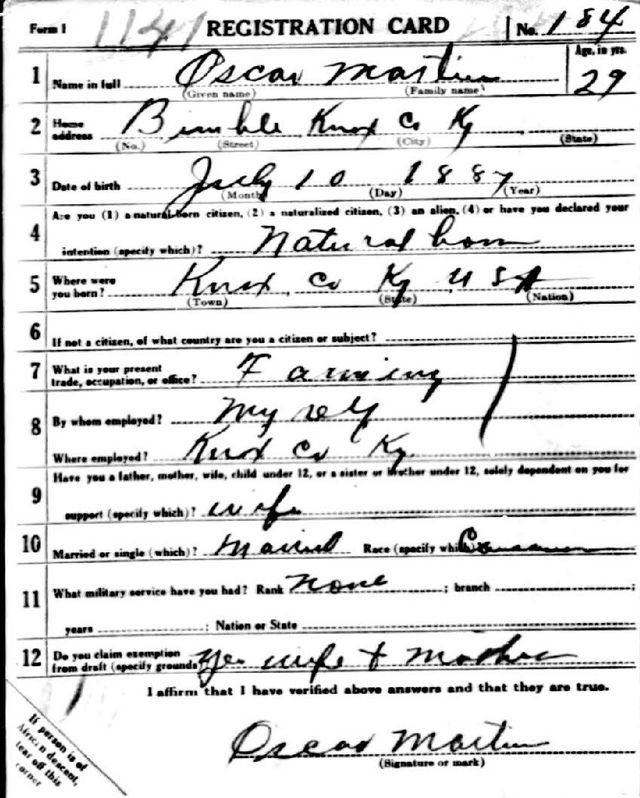 Form 1 1141 REGISTRATION CARD No. 184
1 Name in full Oscar Martin Age, in yrs. 29
(Given name) (Family name)
2 Home address Bimble Knox Co Ky
(No.) (Street) (City) (State)
3 Date of birth July 10 1887
(Month) (Day) (Year)
4 Are you (1) a natural-born citizen, (2) a naturalized citizen, (3) an alien, (4) or have you declared your
intention (specify which)? Natural born
5 Where were you born? Knox Co Ky USA
(Town) (State) (Nation)
6 If not a citizen, of what country are you a citizen or subject?
7 What is your present trade, occupation, or office? Farming
8 By whom employed? My self
Where employed? Knox Co Ky
9 Have you a father, mother, wife, child under 12, or a sister or brother under 12, solely dependent on you for
support (specify which)? wife
10 Married or single (which)? Married Race (specify which)? Caucasian
11 What military service have you had? Rank none ; branch ;
years ; Nation or State
12 Do you claim exemption from draft (specify grounds)? Yes wife & Mother
I affirm that I have verified above answers and that they are true.
Oscar Martin
(Signature or mark)
If person is of
African descent,
tear off this
corner